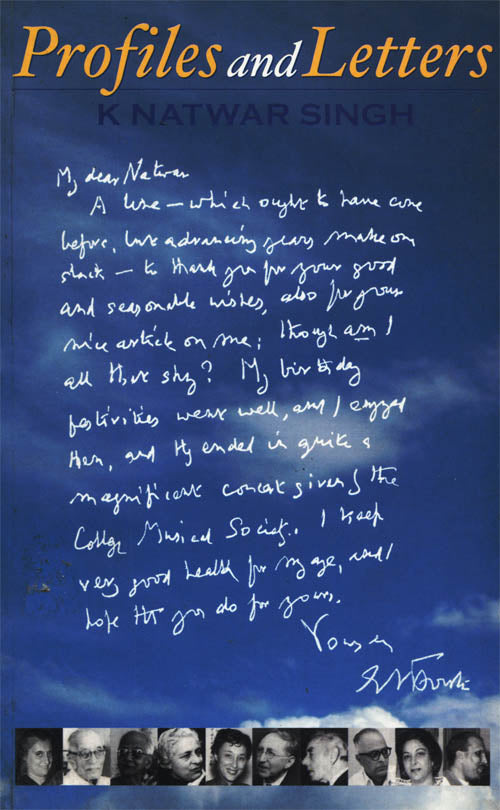 Profiles and Letters
K NATWAR SINGH
My dear Natwar
A line — which ought to have come
before, but advancing years make one
slack — to thank you for your good
and seasonable wishes, also for your
nice article on me; though am I
all that shy? My birthday
festivities went well, and I enjoyed
them, and they ended in quite a
magnificent concert given by the
College Musical Society. I keep
very good health for my age, and I
hope that you do for yours.
Yours ever
EM Forster